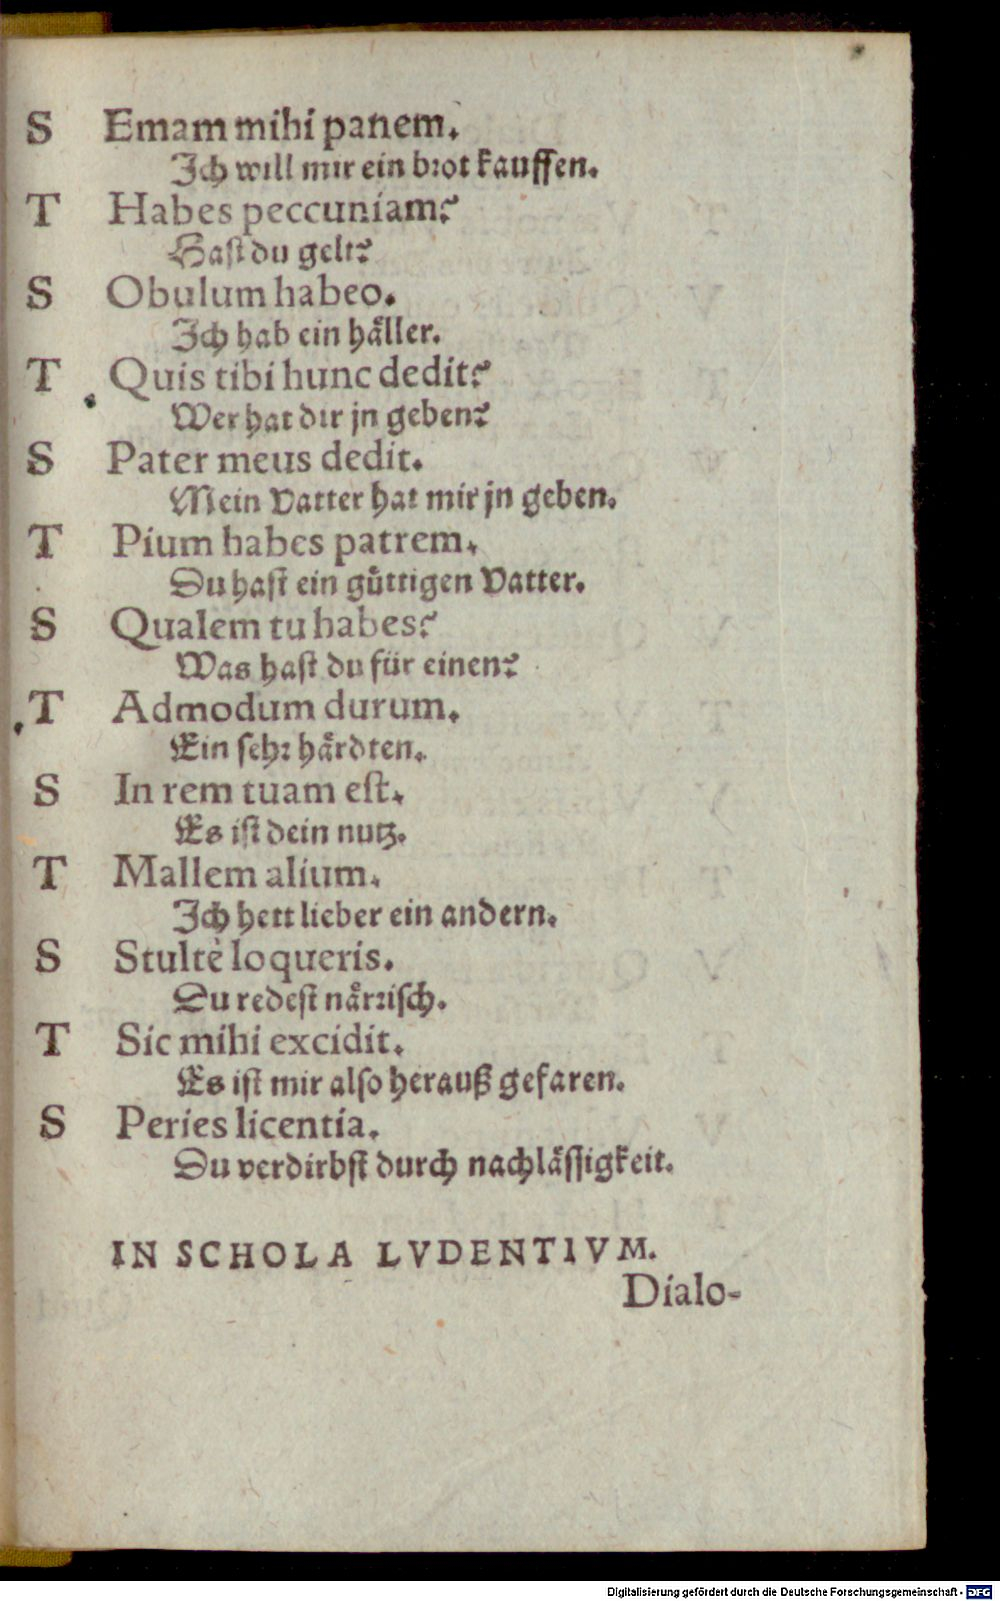 S Emam mihi panem.
Ich will mir ein brot kauffen.
T Habes peccuniam?
Hast du gelt?
S Obulum habeo.
Ich hab ein håller.
T Quis tibi hunc dedit?
Wer hat dir jn geben?
S Pater meus dedit.
Mein Vatter hat mir jn geben.
T Pium habes patrem.
Du hast ein gůttigen Vatter.
S Qualem tu habes?
Was hast du für einen?
T Admodum durum.
Ein sehr hårdten.
S In rem tuam est.
Es ist dein nutz.
T Mallem alium.
Ich hett lieber ein andern.
S Stultè loqueris.
Du redest nårrisch.
T Sic mihi excidit.
Es ist mir also herauß gefaren.
S Peries licentia.
Du verdirbst durch nachlåssigkeit.
IN SCHOLA LVDENTIVM.
Dialo-
Digitalisierung gefördert durch die Deutsche Forschungsgemeinschaft - DFG